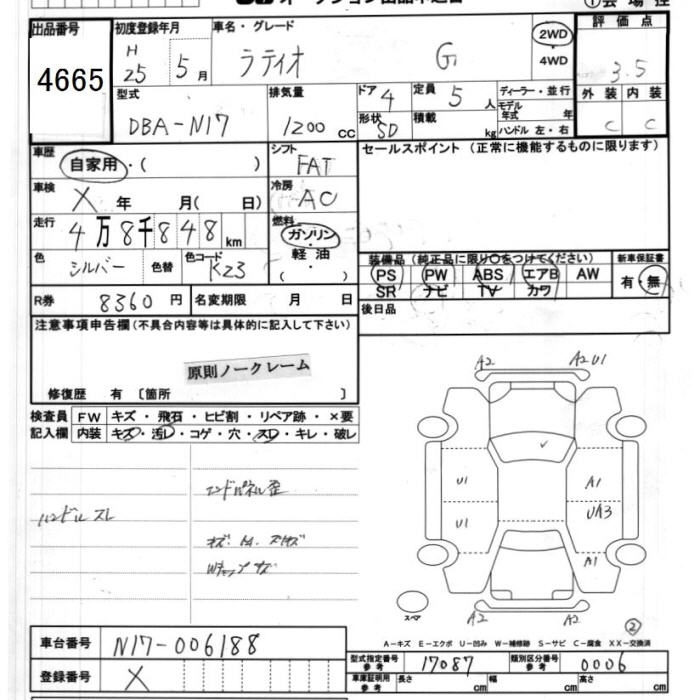 出品番号 初度登録年月 車名・グレード 2WD ・ 4WD 評価点
4665 H 25 5月 ラティオ G 3.5
型式 排気量 ドア 4 定員 5人 ディーラー・並行 外装 内装
DBA-N17 1200 cc 形状 SD 積載 kg モデル年式 年 ハンドル 左・右 C C
車歴 自家用・( ) シフト FAT セールスポイント (正常に機能するものに限ります)
車検 X 年 月( 日) 冷房 AC
走行 4万8千848 km 燃料 ガソリン・軽油・( )
色 シルバー 色替 色コード K23
装備品 (純正品に限り○をつけてください) 新車保証書
PS PW ABS エアB AW 有・無
SR ナビ TV カワ
R券 8360 円 名変期限 月 日 後日品
注意事項申告欄 (不具合内容等は具体的に記入して下さい)
原則ノークレーム
修復歴 有 〔箇所 〕
検査員 FW キズ・飛石・ヒビ割・リペア跡・×要
記入欄 内装 キズ・汚レ・コゲ・穴・スレ・キレ・破レ
ハンドルスレ
エンドパネル歪
A2 A2U1
U1 A1
U1 UA3
A1
スペア A2 A2
②
A-キズ E-エクボ U-凹み W-補修跡 S-サビ C-腐食 XX-交換済
車台番号 N17-006188
登録番号 X
型式指定番号 参考 17087 類別区分番号 参考 0006
車庫証明用 参考 長さ cm 幅 cm 高さ cm